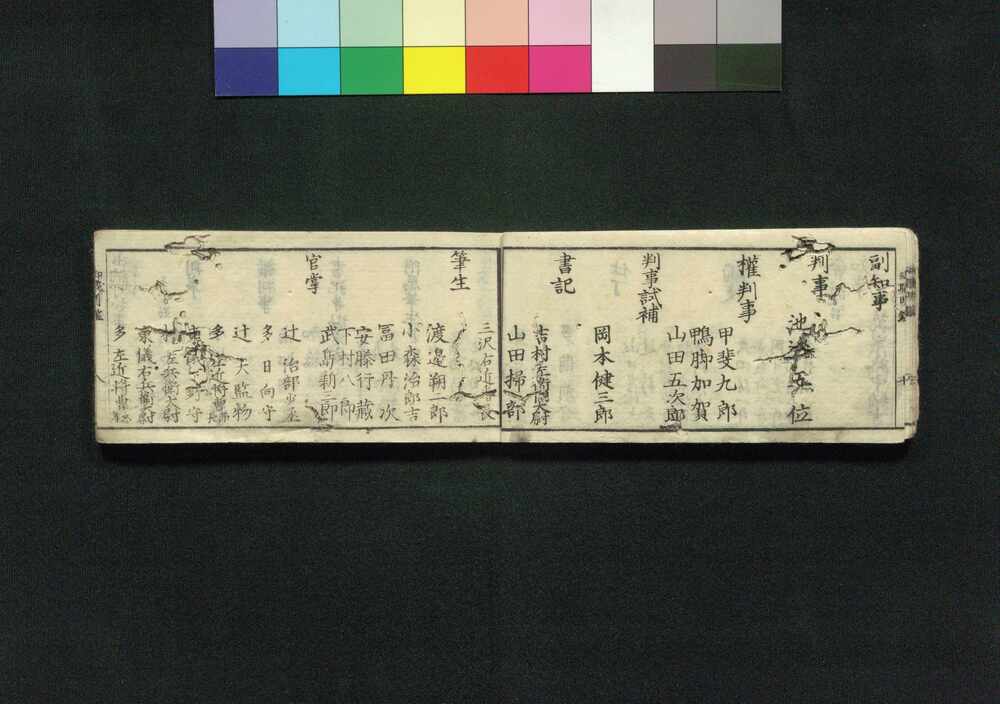 副知事
判事
池 五位
權判事
甲斐九郎
鴨脚加賀
山田五次郎
判事試補
岡本健三郎
書記
吉村左衛門大尉
山田掃部
三沢右近
筆生
渡邉鞆一郎
小森治郎吉
冨田丹次
安藤行藏
下村八郎
武島莉三郎
官掌
辻治部少丞
多日向守
辻大監物
多左近將曹
守
左兵衛大尉
東儀右兵衛尉
多左近將曹